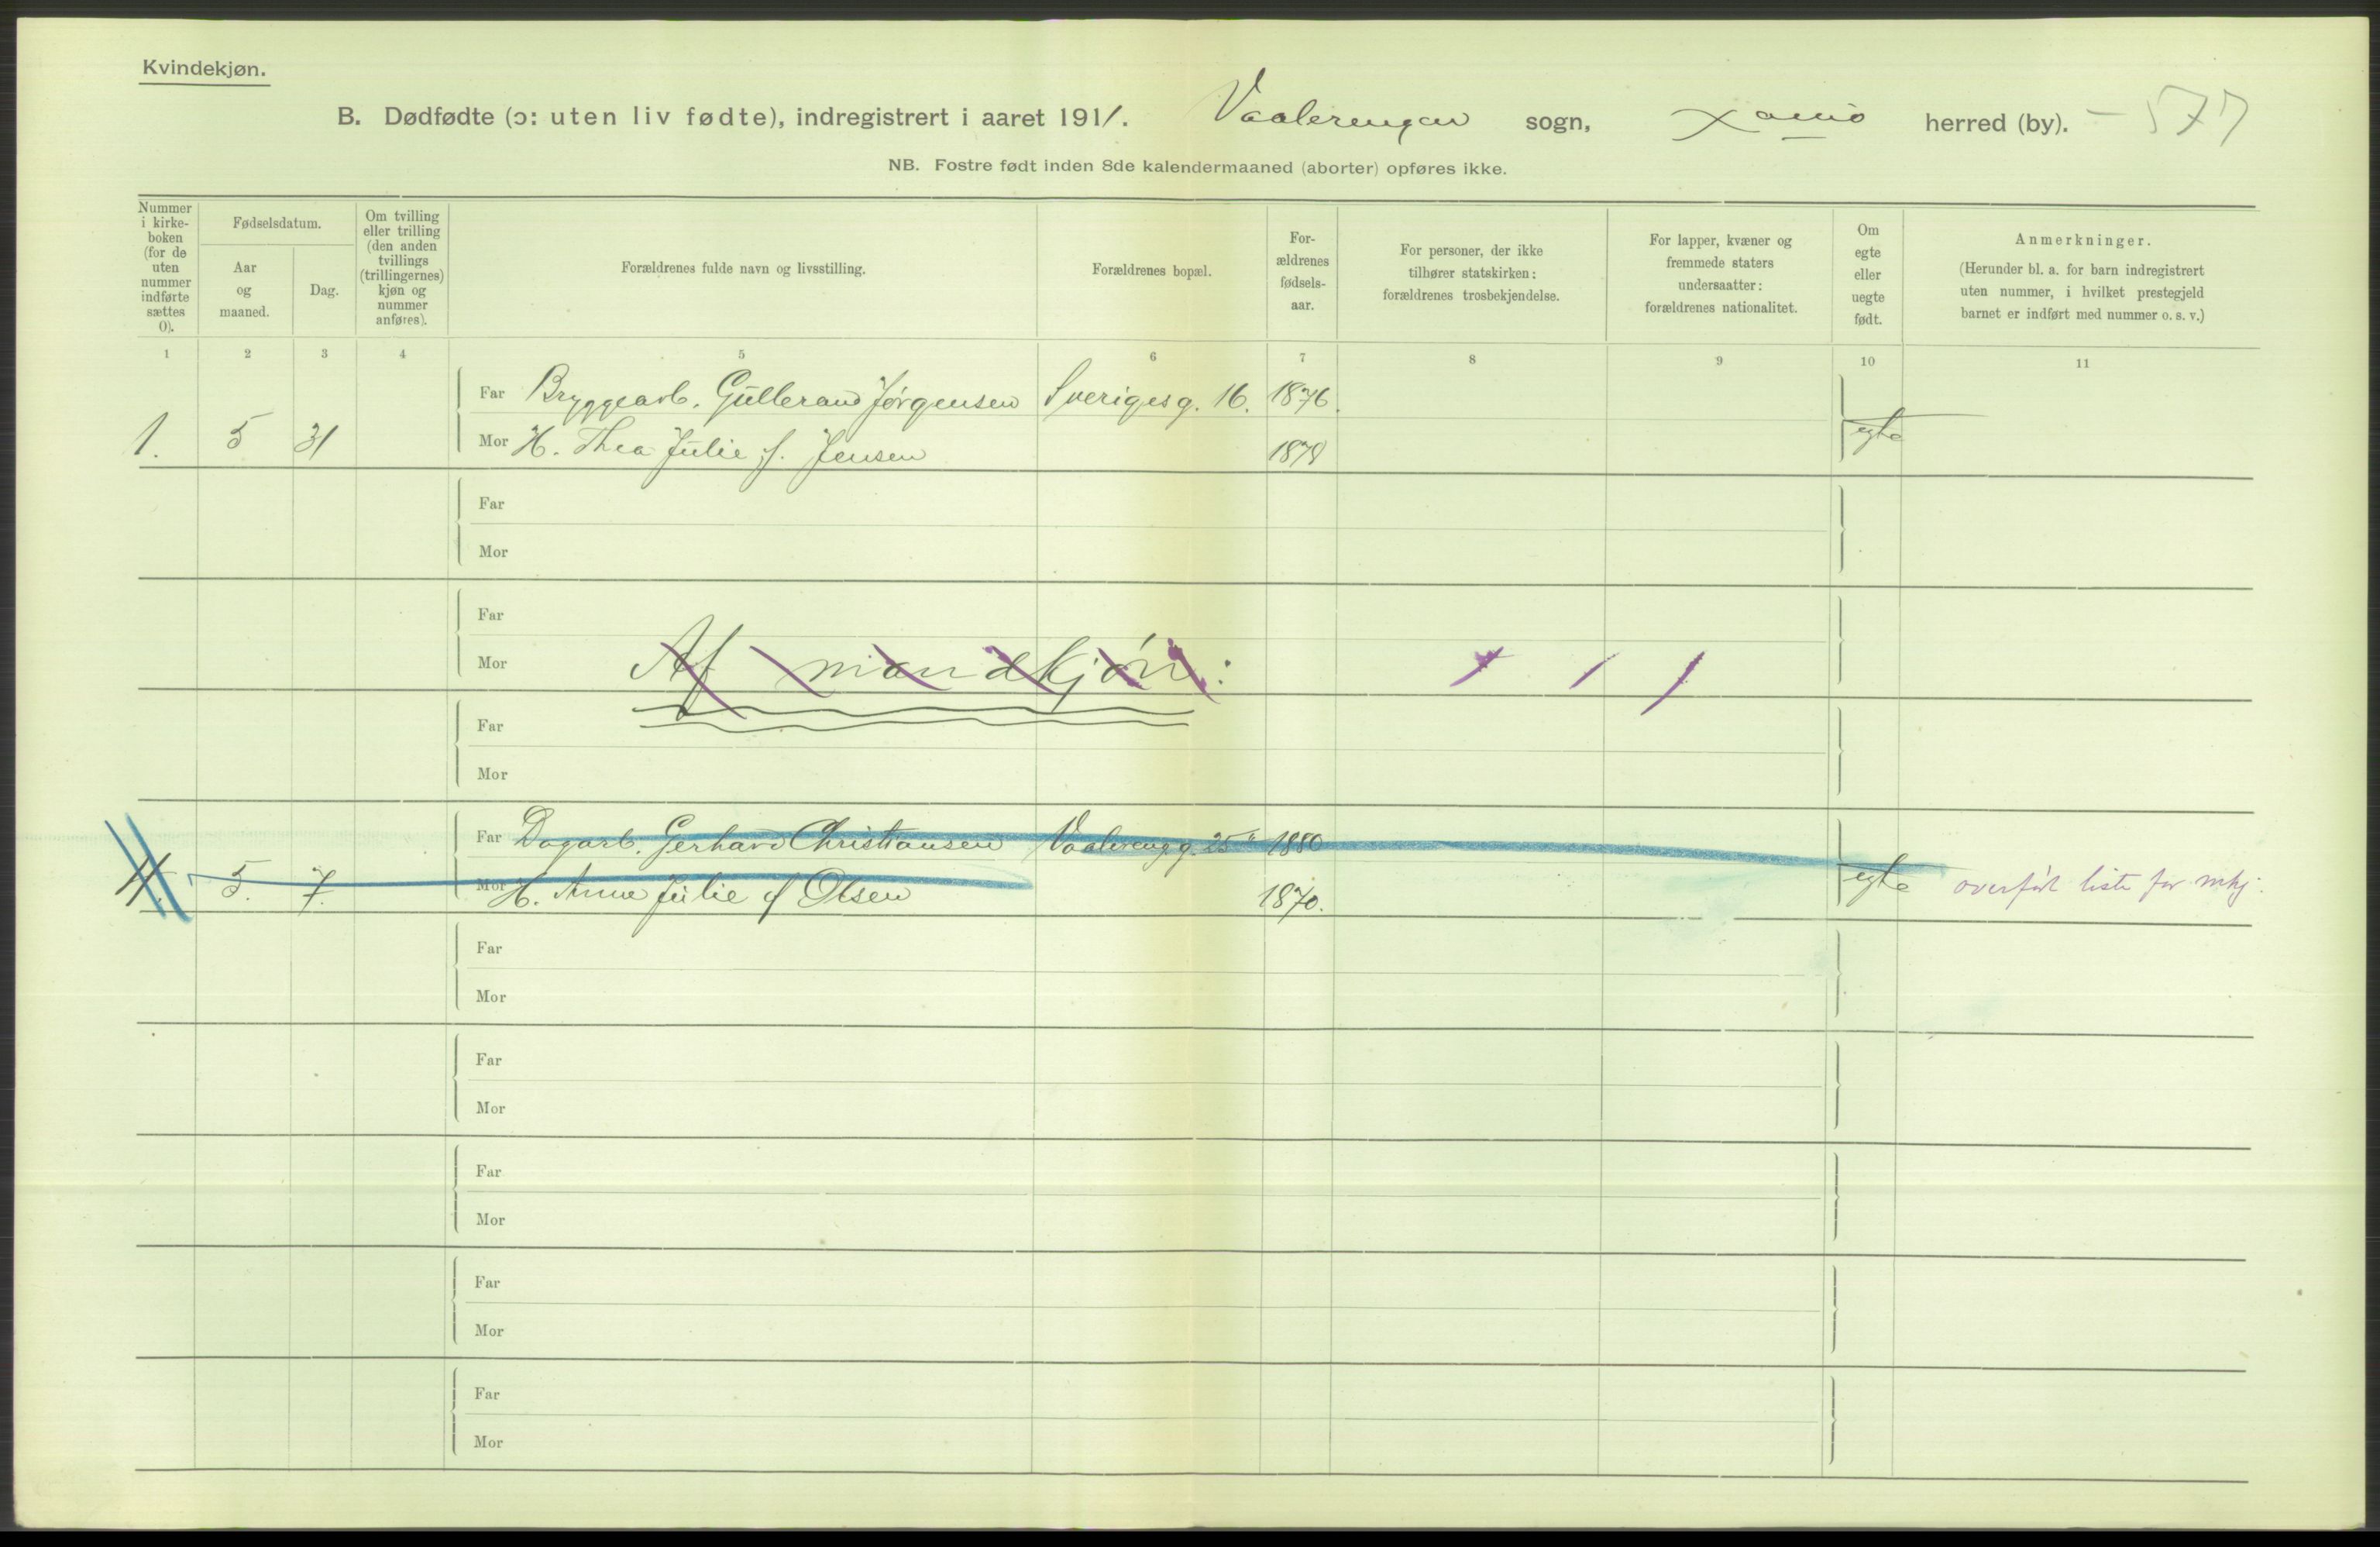 Kvindekjøn.
B. Dødfødte (ɔ: uten liv fødte), indregistrert i aaret 1911. Vaalerengen sogn, Xania herred (by). – 577
NB. Fostre født inden 8de kalendermaaned (aborter) opføres ikke.
Nummer i kirke-boken (for de uten nummer indførte sættes 0).
Fødselsdatum.
Aar og maaned.
Dag.
Om tvilling eller trilling (den anden tvillings (trillingernes) kjøn og nummer anføres).
Forældrenes fulde navn og livsstilling.
Forældrenes bopæl.
For-ældrenes fødsels-aar.
For personer, der ikke tilhører statskirken: forældrenes trosbekjendelse.
For lapper, kvæner og fremmede staters undersaatter: forældrenes nationalitet.
Om egte eller uegte født.
Anmerkninger.
(Herunder bl. a. for barn indregistrert uten nummer, i hvilket prestegjeld barnet er indført med nummer o. s. v.)
1 2 3 4 5 6 7 8 9 10 11
Far Bryggearb. Gulleran Jørgensen Sverigesg. 16. 1876.
1. 5 31 Mor H. Thea Julie f. Jensen 1878 egte
Far
Mor
Far
Mor Af mandkjøn:
Far
Mor
Far Dagarb. Gerhard Christiansen Vaalerengg. 25 1880
5. 7. Mor H. Anna Julie f Olsen 1870. egte overført liste for mkj.
Far
Mor
Far
Mor
Far
Mor
Far
Mor
Far
Mor